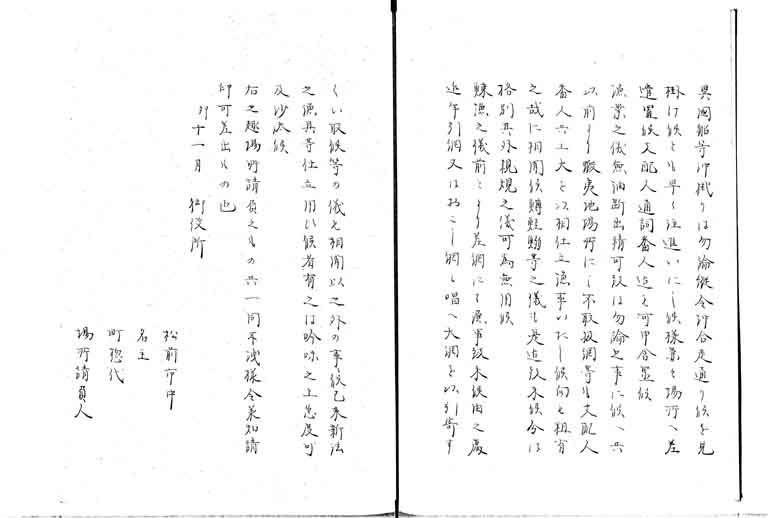 異国船等沖掛りは勿論縦令沖合走通り候を見
掛け候とも早々注進いたし候様兼々場所へ差
遣置候支配人通詞番人迄も可申含置候
漁業之儀無油断出精可致は勿論之事に候へ共
以前より蝦夷地場所にて不取扱網等も支配人
番人共工夫を以相仕立漁事いたし候向も相有
之哉に相聞候鱒鮭鰯等之儀も是迄致来候分は
格別其外規規之儀可為無用候
鰊漁之儀前々より差網にて漁事致来候由之処
近年引網又はおこし網と唱へ大網を以引寄す
くい取候等の儀も相聞以之外の事候已来新法
之漁具等仕立用い候者有之は吟味之上急度可
及沙汰候
右之趣場所請負之もの共一同不洩様令承知請
印可差出もの也
卯十一月 御役所
松前市中
名主
町惣代
場所請負人